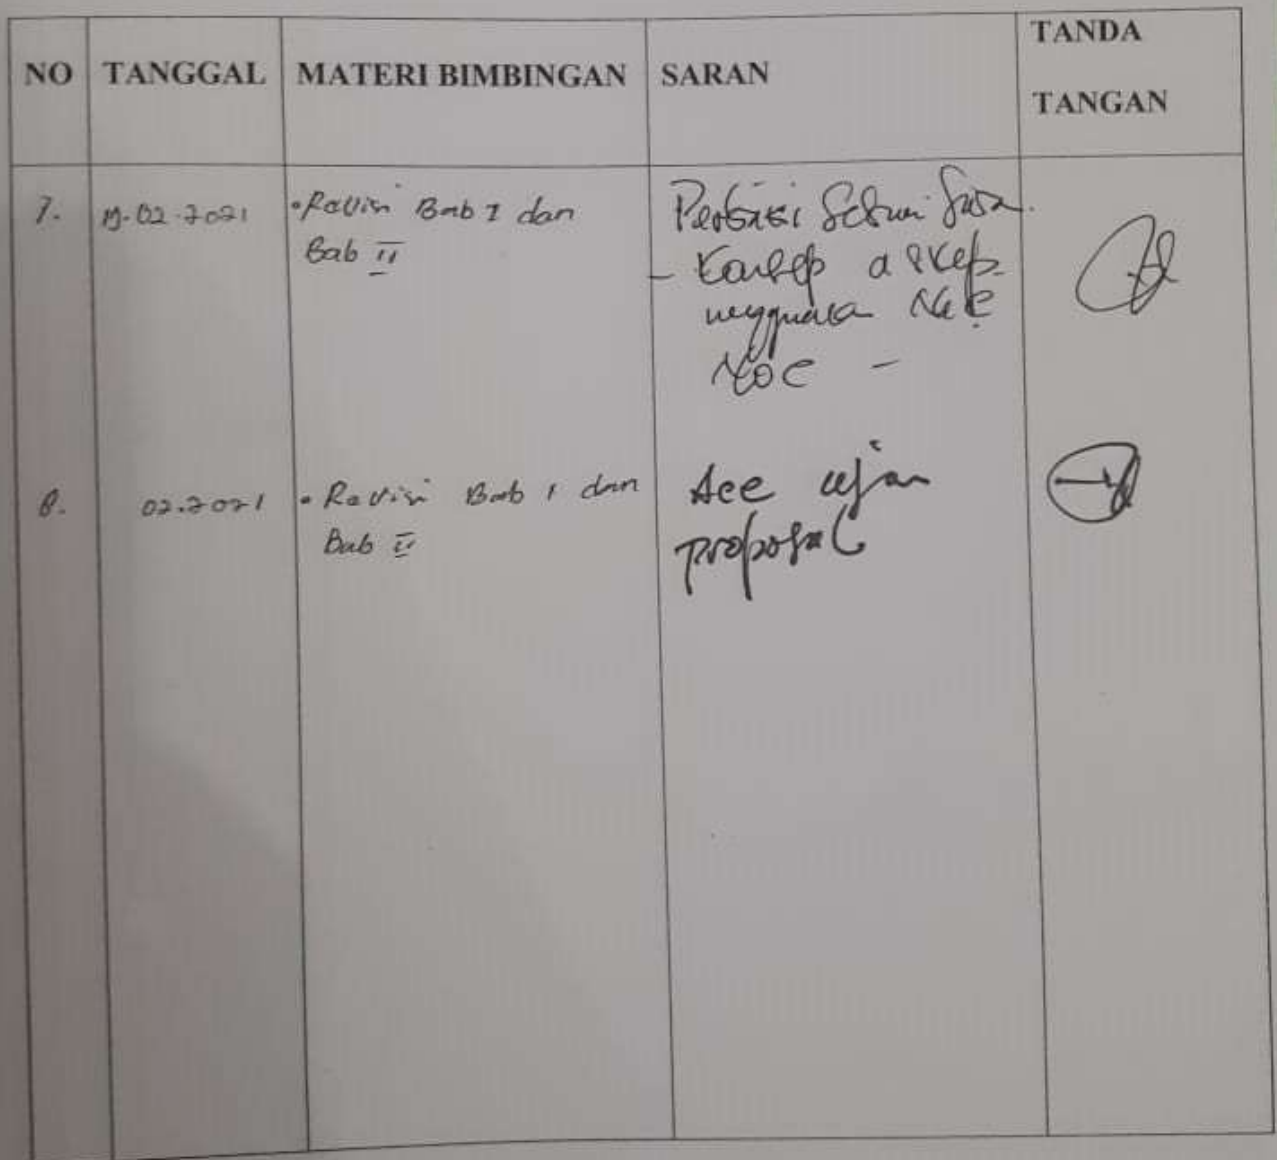 NO TANGGAL MATERI BIMBINGAN SARAN TANDA TANGAN
7. 02-2021 • Revisi Bab I dan
Bab II
Perbaiki Sesuai Saran
- Konsep askep
NIC
NOC -
8. 02.2021 • Revisi Bab I dan
Bab II
Acc ujian
proposal